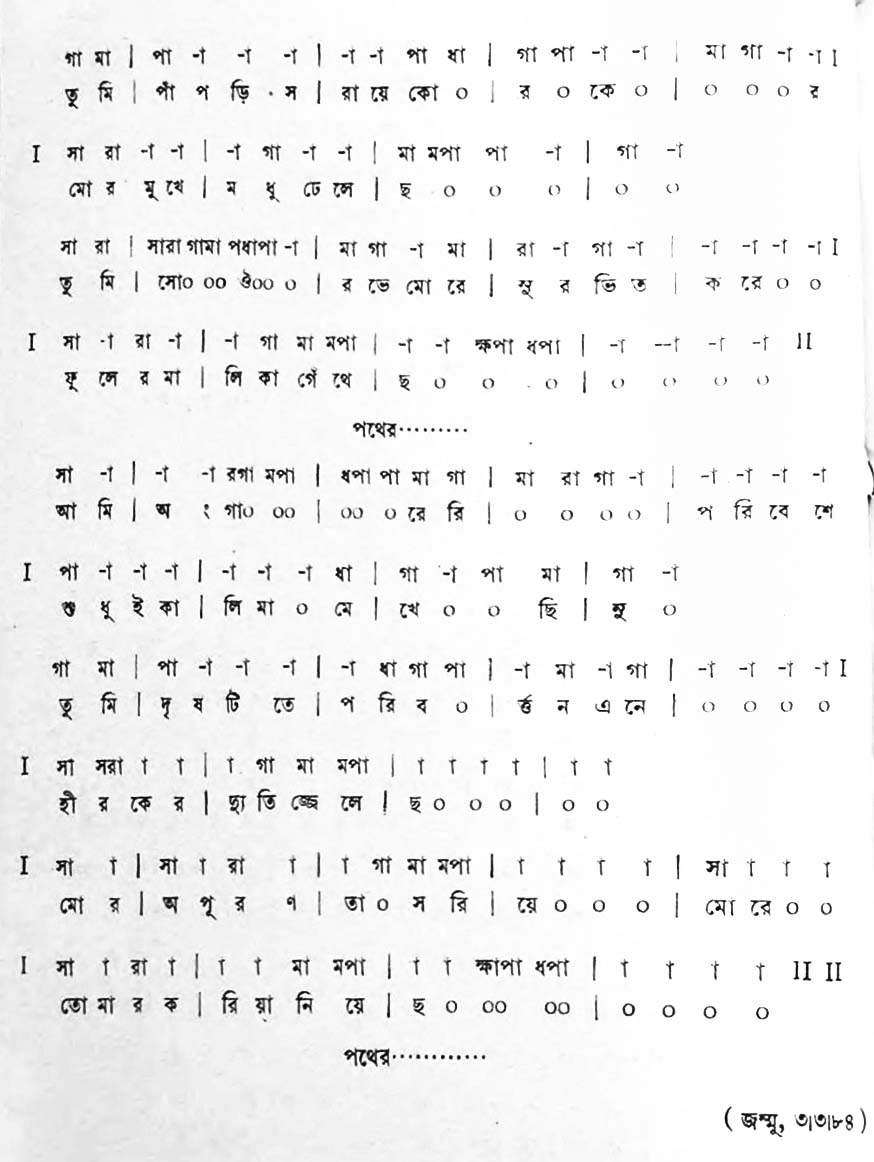 গা মা | পা -া -া -া | -া -া পা ধা | গা পা -া -া | মা গা -া -া I
তু মি | পাঁ প ড়ি · স | রা য়ে কো ০ | র ০ কে ০ | ০ ০ ০ র
I সা রা -া -া | -া গা -া -া | মা মপা পা -া | গা -া
মো র মু খে | ম ধু ঢে লে | ছ ০ ০ ০ | ০ ০
সা রা | সারা গামা পধাপা -া | মা গা -া মা | রা -া গা -া | -া -া -া -া I
তু মি | সো০ ০০ ঔ০০ ০ | র ভে মো রে | সু র ভি ত | ক রে ০ ০
I সা -া রা -া | -া গা মা মপা | -া -া ক্ষপা ধপা | -া --া -া -া II
ফু লে র মা | লি কা গেঁ থে | ছ ০ ০ ০ | ০ ০ ০ ০
পথের·········
সা -া | -া -া রগা মপা | ধপা পা মা গা | মা রা গা -া | -া -া -া -া
আ মি | অ ং গা০ ০০ | ০০ ০ রে রি | ০ ০ ০ ০ | প রি বে শে
I পা -া -া -া | -া -া -া ধা | গা -া পা মা | গা -া
শু ধু ই কা | লি মা ০ মে | খে ০ ০ ছি | মূ ০
গা মা | পা -া -া -া | -া ধা গা পা | -া মা -া গা | -া -া -া -া I
তু মি | দৃ ষ টি তে | প রি ব ০ | র্ত্ত ন এ নে | ০ ০ ০ ০
I সা সরা া া | া গা মা মপা | া া া া | া া
হী র কে র | দ্যু তি জ্জে লে | ছ ০ ০ ০ | ০ ০
I সা া | সা া রা া | া গা মা মপা | া া া া | সা া া া
মো র | অ পূ র ণ | তা ০ স রি | য়ে ০ ০ ০ | মো রে ০ ০
I সা া রা া | া া মা মপা | া া ক্ষাপা ধপা | া া া া II II
তো মা র ক | রি য়া নি য়ে | ছ ০ ০০ ০০ | ০ ০ ০ ০
পথের············
( জম্মূ, ৩|৩|৮৪ )